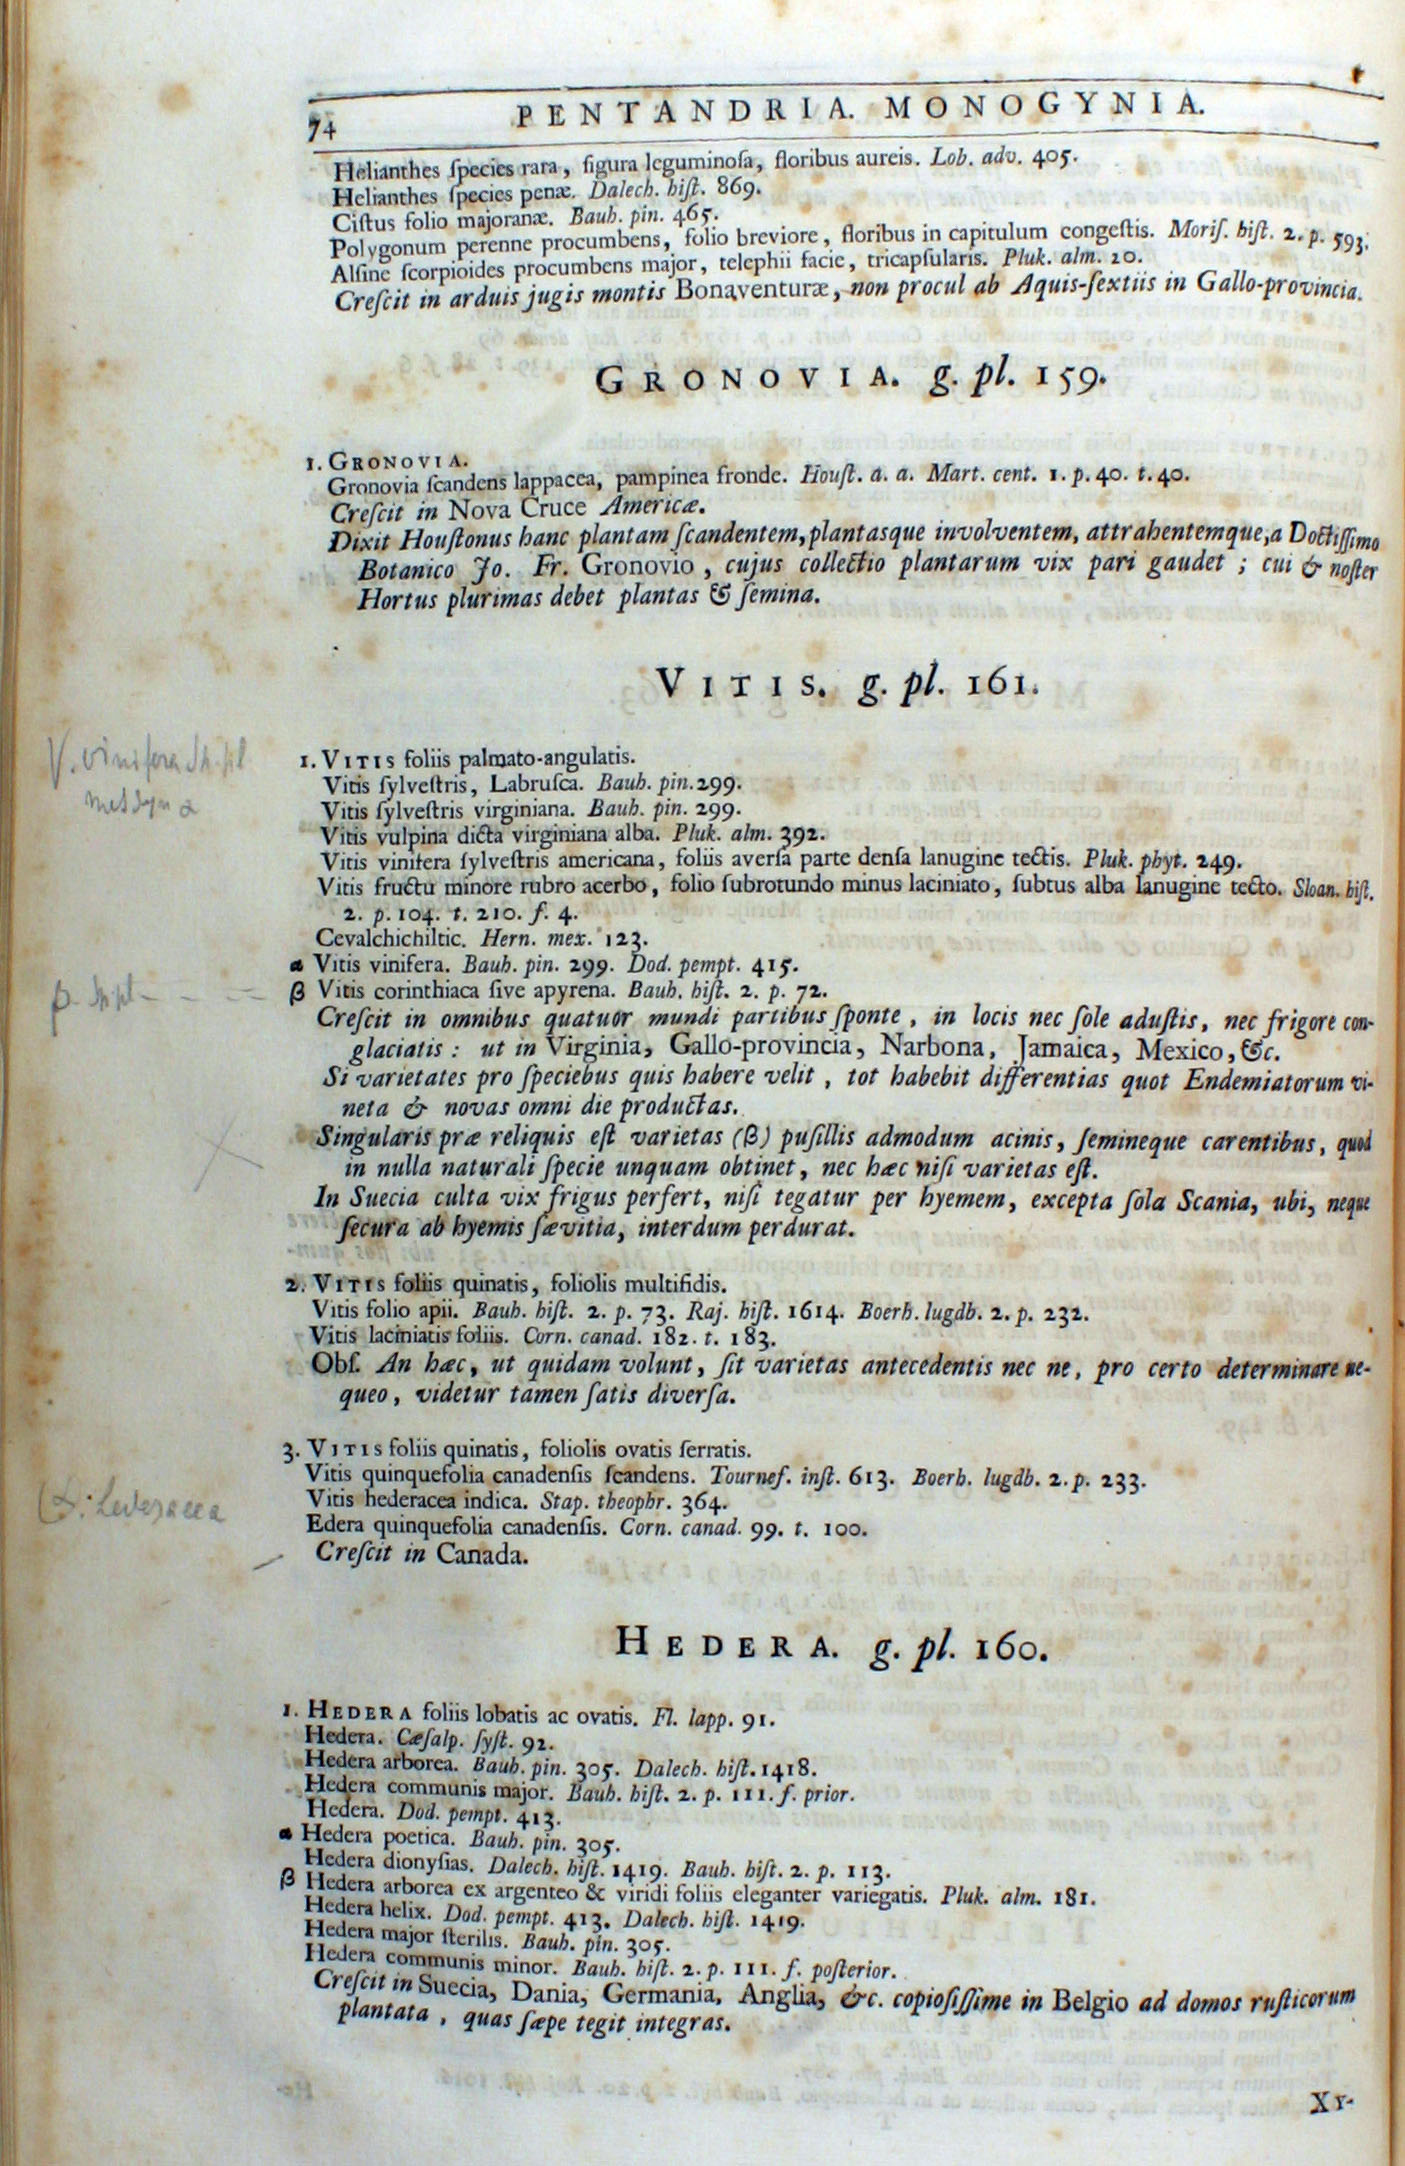 74 PENTANDRIA. MONOGYNIA.
Helianthes ſpecies rara, figura leguminoſa, floribus aureis. Lob. adv. 405.
Helianthes ſpecies penæ. Dalech. hiſt. 869.
Ciſtus folio majoranæ. Bauh. pin. 465.
Polygonum perenne procumbens, folio breviore, floribus in capitulum congeſtis. Moriſ. hiſt. 2. p. 593.
Alſine ſcorpioides procumbens major, telephii facie, tricapſularis. Pluk. alm. 20.
Creſcit in arduis jugis montis Bonaventuræ, non procul ab Aquis-ſextiis in Gallo-provincia.
GRONOVIA. g. pl. 159.
1. GRONOVIA.
Gronovia ſcandens lappacea, pampinea fronde. Houſt. a. a. Mart. cent. 1. p. 40. t. 40.
Creſcit in Nova Cruce Americæ.
Dixit Houſtonus hanc plantam ſcandentem, plantasque involventem, attrahentemque, a Doctiſſimo
Botanico Jo. Fr. Gronovio, cujus collectio plantarum vix pari gaudet; cui & noſter
Hortus plurimas debet plantas & ſemina.
VITIS. g. pl. 161.
1. VITIS foliis palmato-angulatis.
Vitis ſylveſtris, Labruſca. Bauh. pin. 299.
Vitis ſylveſtris virginiana. Bauh. pin. 299.
Vitis vulpina dicta virginiana alba. Pluk. alm. 392.
Vitis vinifera ſylveſtris americana, foliis averſa parte denſa lanugine tectis. Pluk. phyt. 249.
Vitis fructu minore rubro acerbo, folio ſubrotundo minus laciniato, ſubtus alba lanugine tecto. Sloan. hiſt.
2. p. 104. t. 210. f. 4.
Cevalchichiltic. Hern. mex. 123.
α Vitis vinifera. Bauh. pin. 299. Dod. pempt. 415.
β Vitis corinthiaca ſive apyrena. Bauh. hiſt. 2. p. 72.
Creſcit in omnibus quatuor mundi partibus ſponte, in locis nec ſole aduſtis, nec frigore con-
glaciatis: ut in Virginia, Gallo-provincia, Narbona, Jamaica, Mexico, &c.
Si varietates pro ſpeciebus quis habere velit, tot habebit differentias quot Endemiatorum vi-
neta & novas omni die productas.
Singularis præ reliquis eſt varietas (β) puſillis admodum acinis, ſemineque carentibus, quod
in nulla naturali ſpecie unquam obtinet, nec hæc niſi varietas eſt.
In Suecia culta vix frigus perfert, niſi tegatur per hyemem, excepta ſola Scania, ubi, neque
ſecura ab hyemis ſævitia, interdum perdurat.
2. VITIS foliis quinatis, foliolis multifidis.
Vitis folio apii. Bauh. hiſt. 2. p. 73. Raj. hiſt. 1614. Boerh. lugdb. 2. p. 232.
Vitis laciniatis foliis. Corn. canad. 182. t. 183.
Obſ. An hæc, ut quidam volunt, ſit varietas antecedentis nec ne, pro certo determinare ne-
queo, videtur tamen ſatis diverſa.
3. VITIS foliis quinatis, foliolis ovatis ſerratis.
Vitis quinquefolia canadenſis ſcandens. Tournef. inſt. 613. Boerh. lugdb. 2. p. 233.
Vitis hederacea indica. Stap. theophr. 364.
Edera quinquefolia canadenſis. Corn. canad. 99. t. 100.
Creſcit in Canada.
HEDERA. g. pl. 160.
1. HEDERA foliis lobatis ac ovatis. Fl. lapp. 91.
Hedera. Cæſalp. ſyſt. 92.
Hedera arborea. Bauh. pin. 305. Dalech. hiſt. 1418.
Hedera communis major. Bauh. hiſt. 2. p. 111. f. prior.
Hedera. Dod. pempt. 413.
α Hedera poetica. Bauh. pin. 305.
Hedera dionyſias. Dalech. hiſt. 1419. Bauh. hiſt. 2. p. 113.
β Hedera arborea ex argenteo & viridi foliis eleganter variegatis. Pluk. alm. 181.
Hedera helix. Dod. pempt. 413. Dalech. hiſt. 1419.
Hedera major ſterilis. Bauh. pin. 305.
Hedera communis minor. Bauh. hiſt. 2. p. 111. f. poſterior.
Creſcit in Suecia, Dania, Germania, Anglia, &c. copioſiſſime in Belgio ad domos ruſticorum
plantata, quas ſæpe tegit integras.
Xy-
V. vinifera
β
hederacea